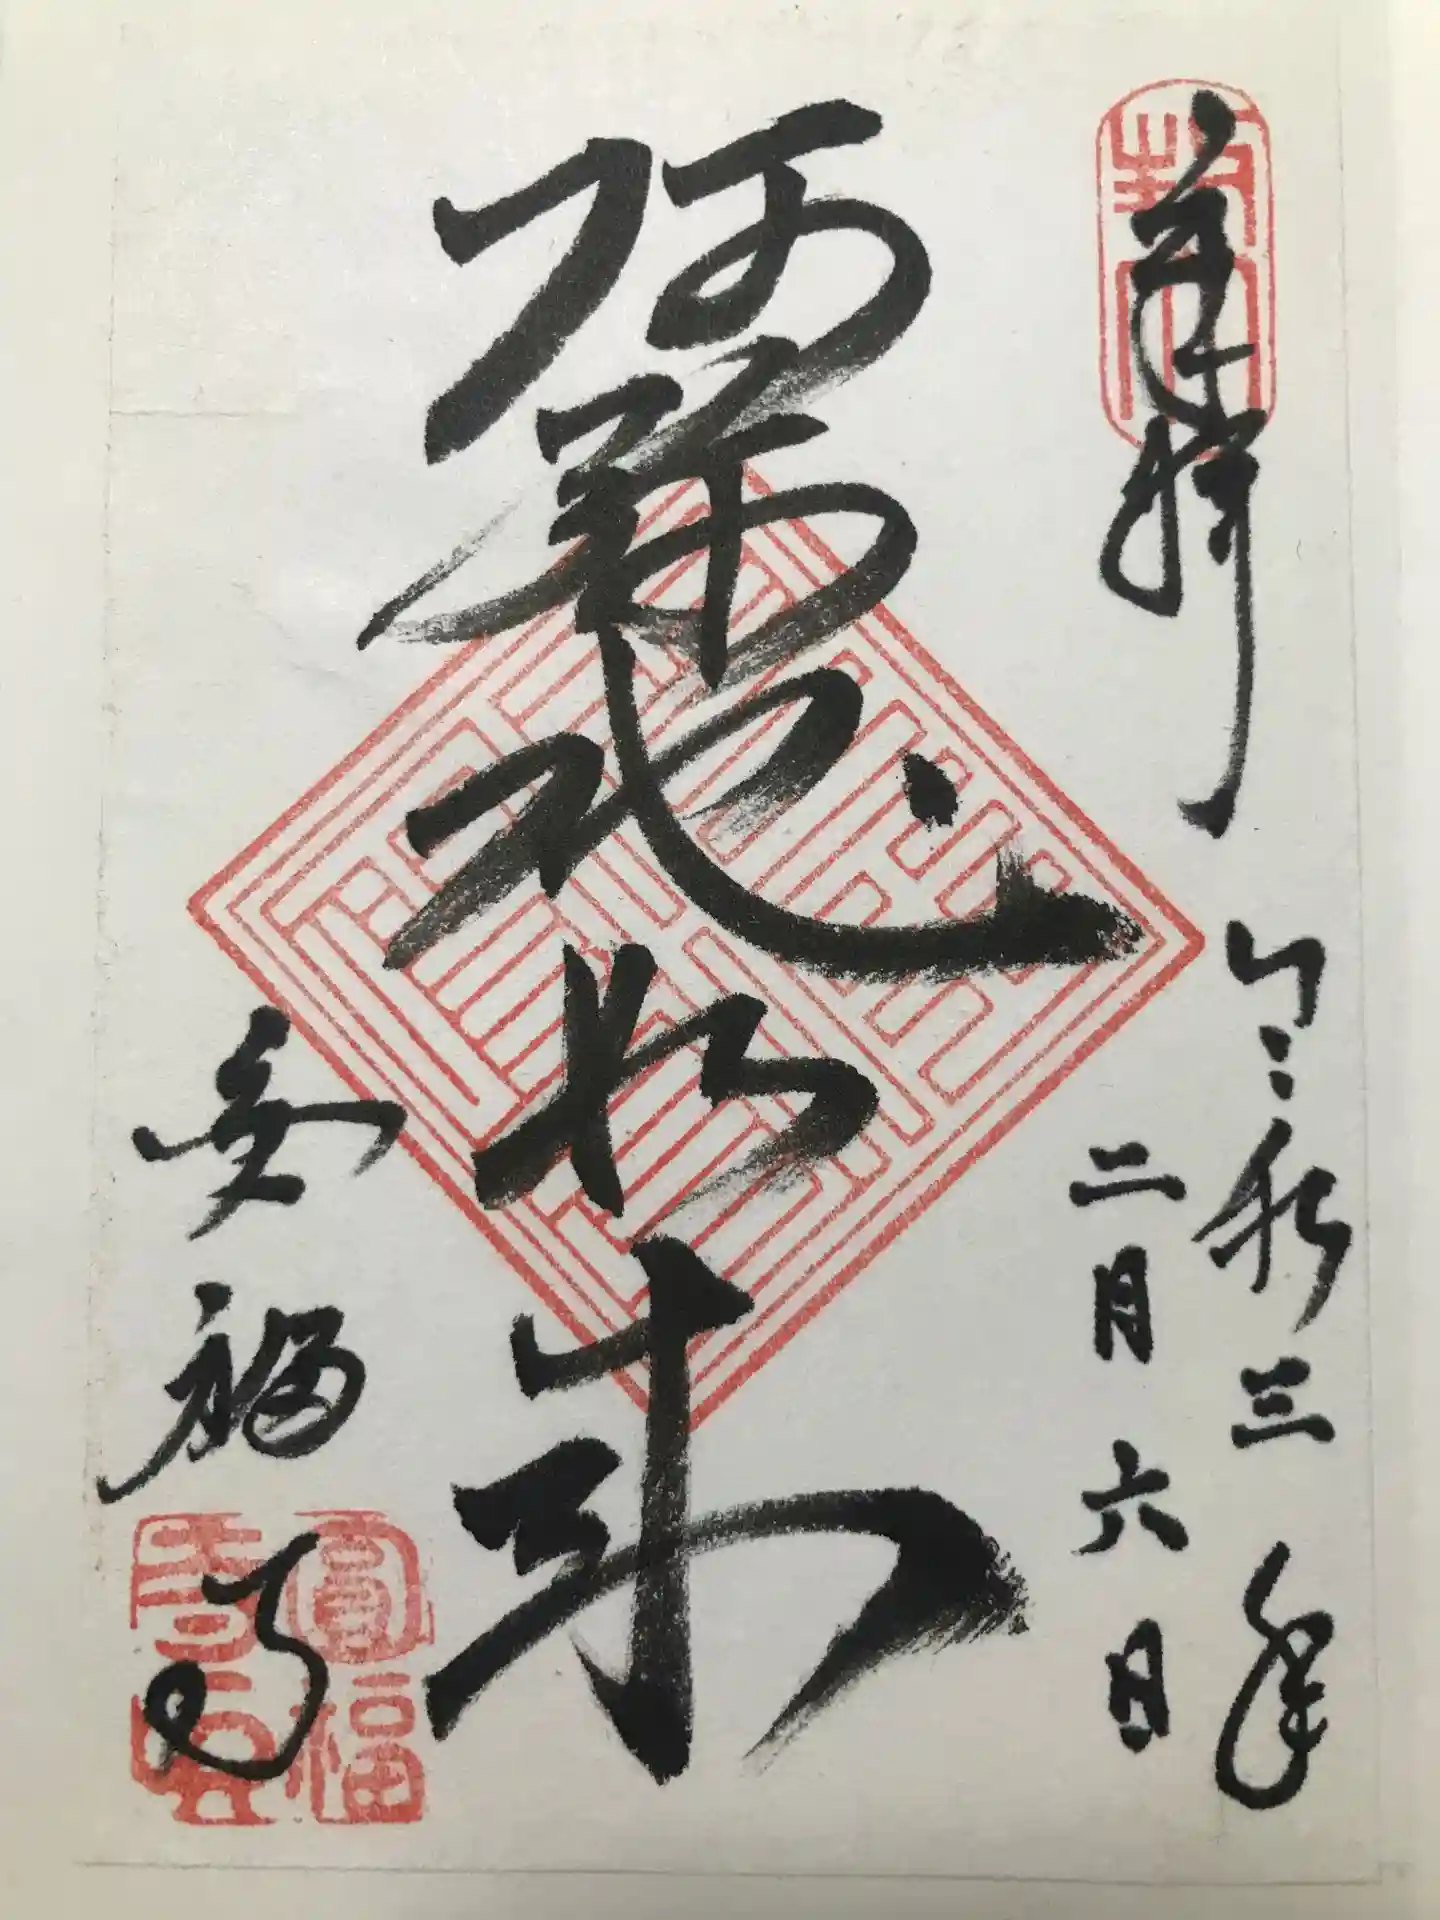 奉拝
令和三年
二月六日
阿弥陀如来
圓福寺
圓福
寺印